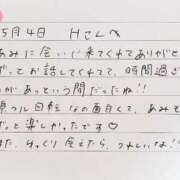 5月4日 Hさんへ
あみに会いに来てくれてありがと
ずっとお話してくれて、時間過ぎ
があっという間だったね!!
回転 なの面白くて、あみで
っと楽しかったです♡
また、ゆっくり会えたら、うれしいな!!